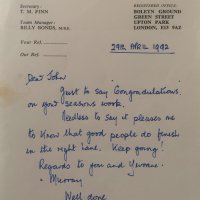 Secretary:
T. M. FINN
Team Manager:
BILLY BONDS, M.B.E.
Your Ref.
Our Ref.
REGISTERED OFFICE:
BOLEYN GROUND
GREEN STREET
UPTON PARK
LONDON, E13 9AZ
29th APRIL 1992
Dear John
Just to say Congratulations
on your seasons work.
Needless to say it pleases me
to know that good people do finish
in the right lane. Keep going!
Regards to you and Yvonne
Murray
Well done